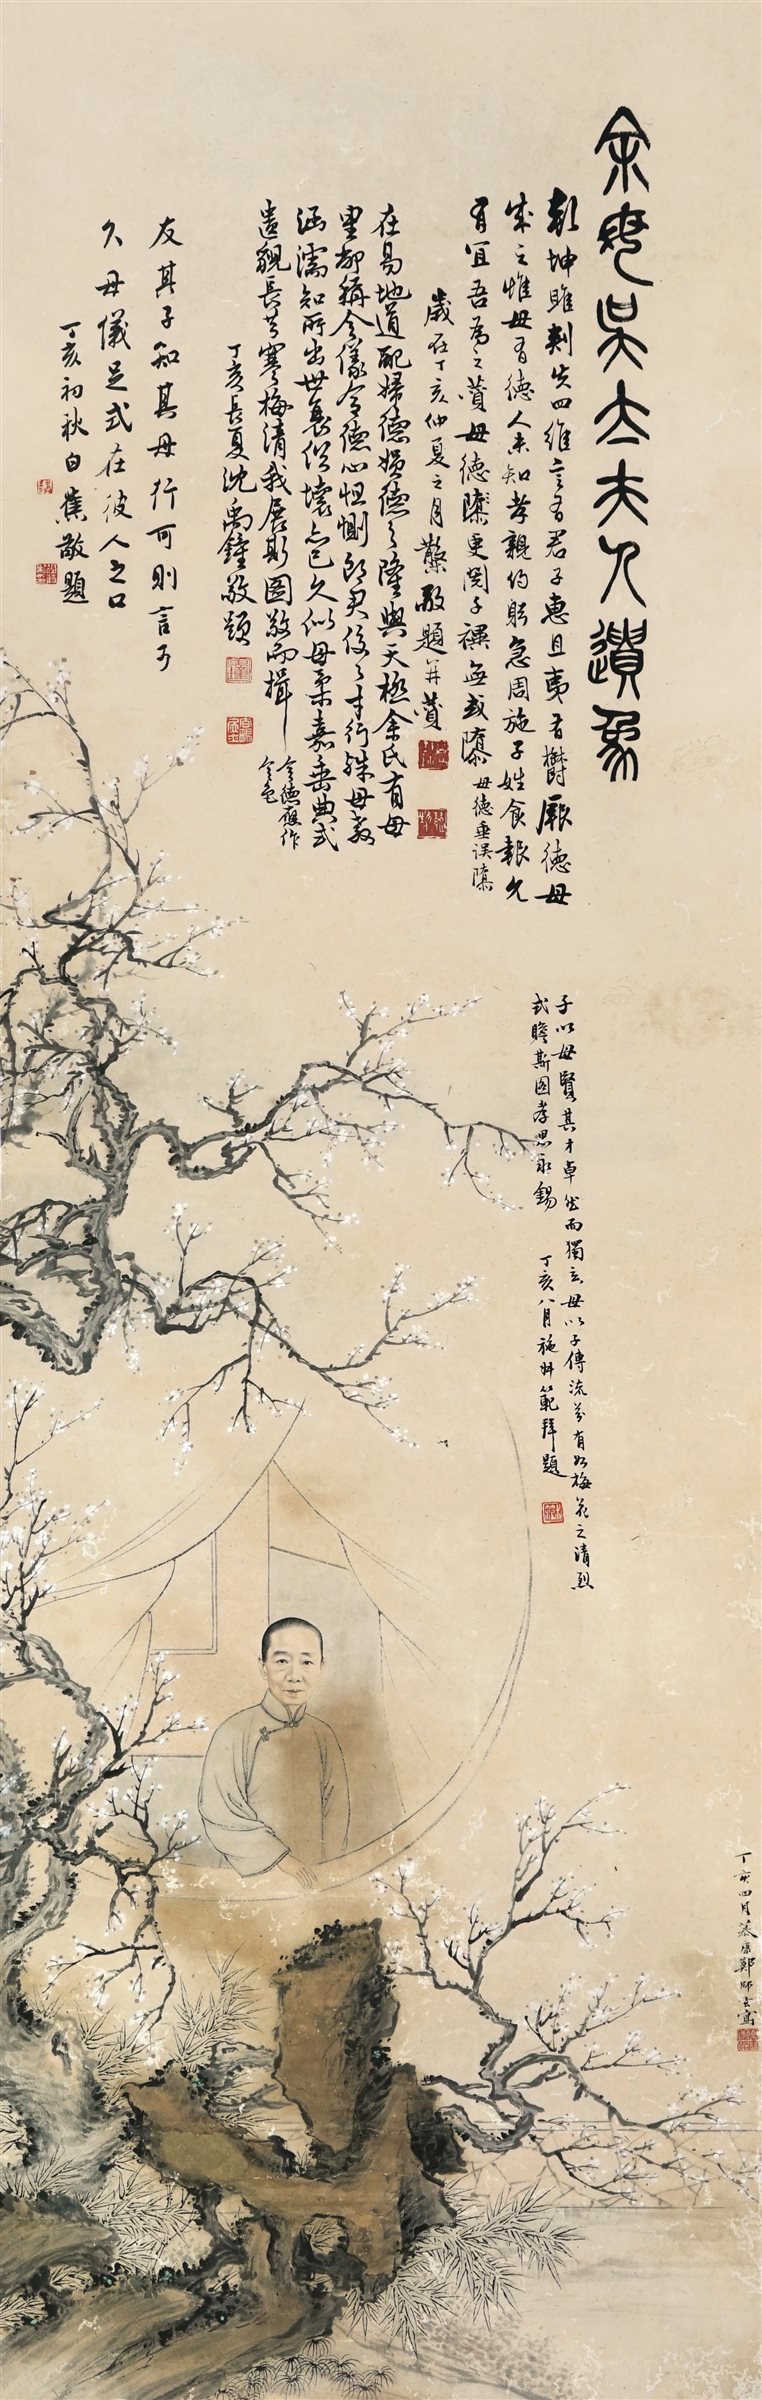 余母吴太夫人遗象
乾坤虽剥失四维言有君子惠且夷有郁厥德母
成之惟母有德人未知孝亲约躬急周施子姓食报允
有宜吾为之赞母德隳更闵子禩无或隳 母德垂误隳
岁在丁亥仲夏之月 敬题并赞
在易地道配妇德坤德之隆与天极余氏有母
里都称令仪令德心怛恻郎君俊人才行殊母教
涵濡知所出世衰俗坏亡已久似母柔嘉垂典式
遗貌长共寒梅清我展斯图敬而揖 令德应作
令色
丁亥长夏沈禹钟敬题
友其子知其母行可则言可
久母仪足式在彼人之口
丁亥初秋白蕉敬题
子以母贤其才卓然而独立母以子传流芬有如梅花之清烈
式瞻斯图孝思永锡 丁亥八月施叔范拜题
丁亥四月慕康郑师玄写